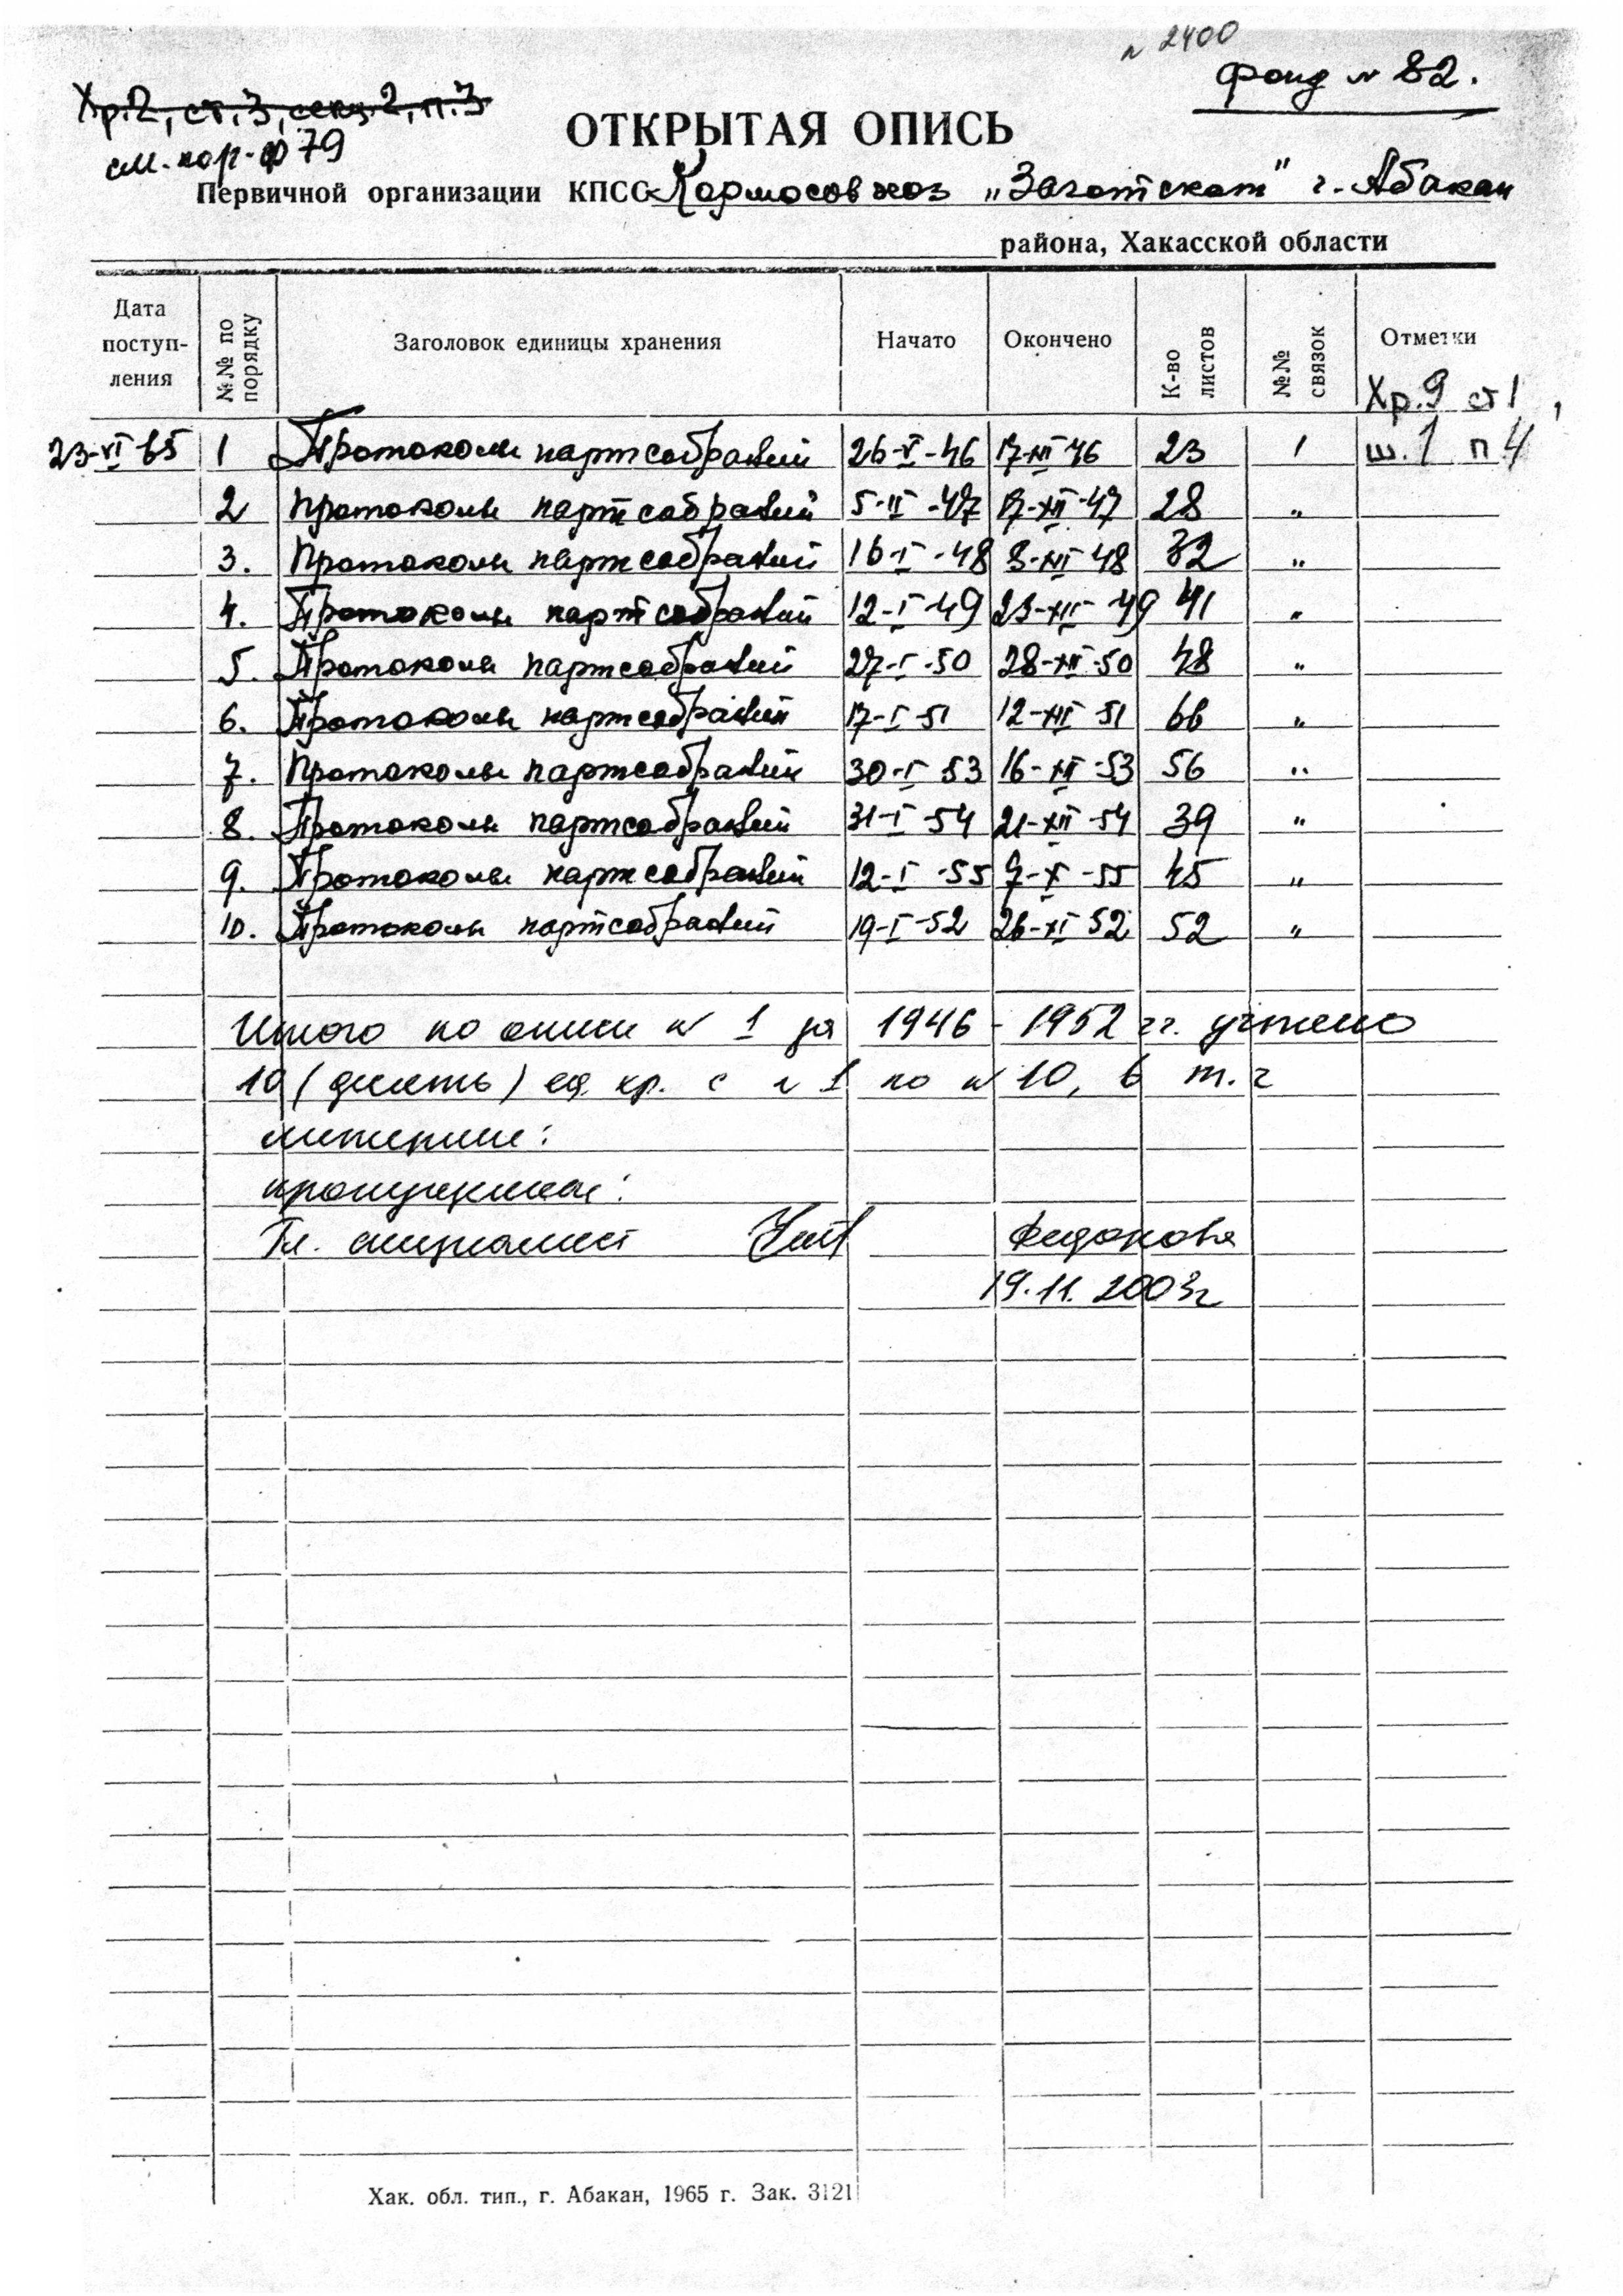 № 2400
Фонд № 82.
Хр.2, ст.3, секц.2, п.3
см. кор. ф 79
ОТКРЫТАЯ ОПИСЬ
Первичной организации КПСС Кормосовхоз „Заготскот" г. Абакан
района, Хакасской области
Дата поступ-ления №№ по порядку Заголовок единицы хранения Начато Окончено К-во листов №№ связок Отметки
Хр.9 ст1,
23-VI 65 1 Протоколы партсобраний 26-V-46 17-XII 46 23 1 ш.1 п4
2 Протоколы партсобраний 5-II-47 17-XII-47 28 „
3. Протоколы партсобраний 16-I-48 8-XII-48 32 „
4. Протоколы партсобраний 12-I-49 23-XII-49 41 „
5. Протоколы партсобраний 27-I-50 28-XII-50 48 „
6. Протоколы партсобраний 17-I-51 12-XII-51 66 „
7. Протоколы партсобраний 30-I-53 16-XII-53 56 „
8. Протоколы партсобраний 31-I-54 21-XII-54 39 „
9. Протоколы партсобраний 12-I-55 7-X-55 45 „
10. Протоколы партсобраний 19-I-52 26-XI 52 52 „
Итого по описи № 1 за 1946 - 1952 гг. учтено
10 (десять) ед. хр. с № 1 по № 10, в т.ч
литерные:
пропущенные:
Гл. специалист
19.11.2003г
Хак. обл. тип., г. Абакан, 1965 г. Зак. 3121